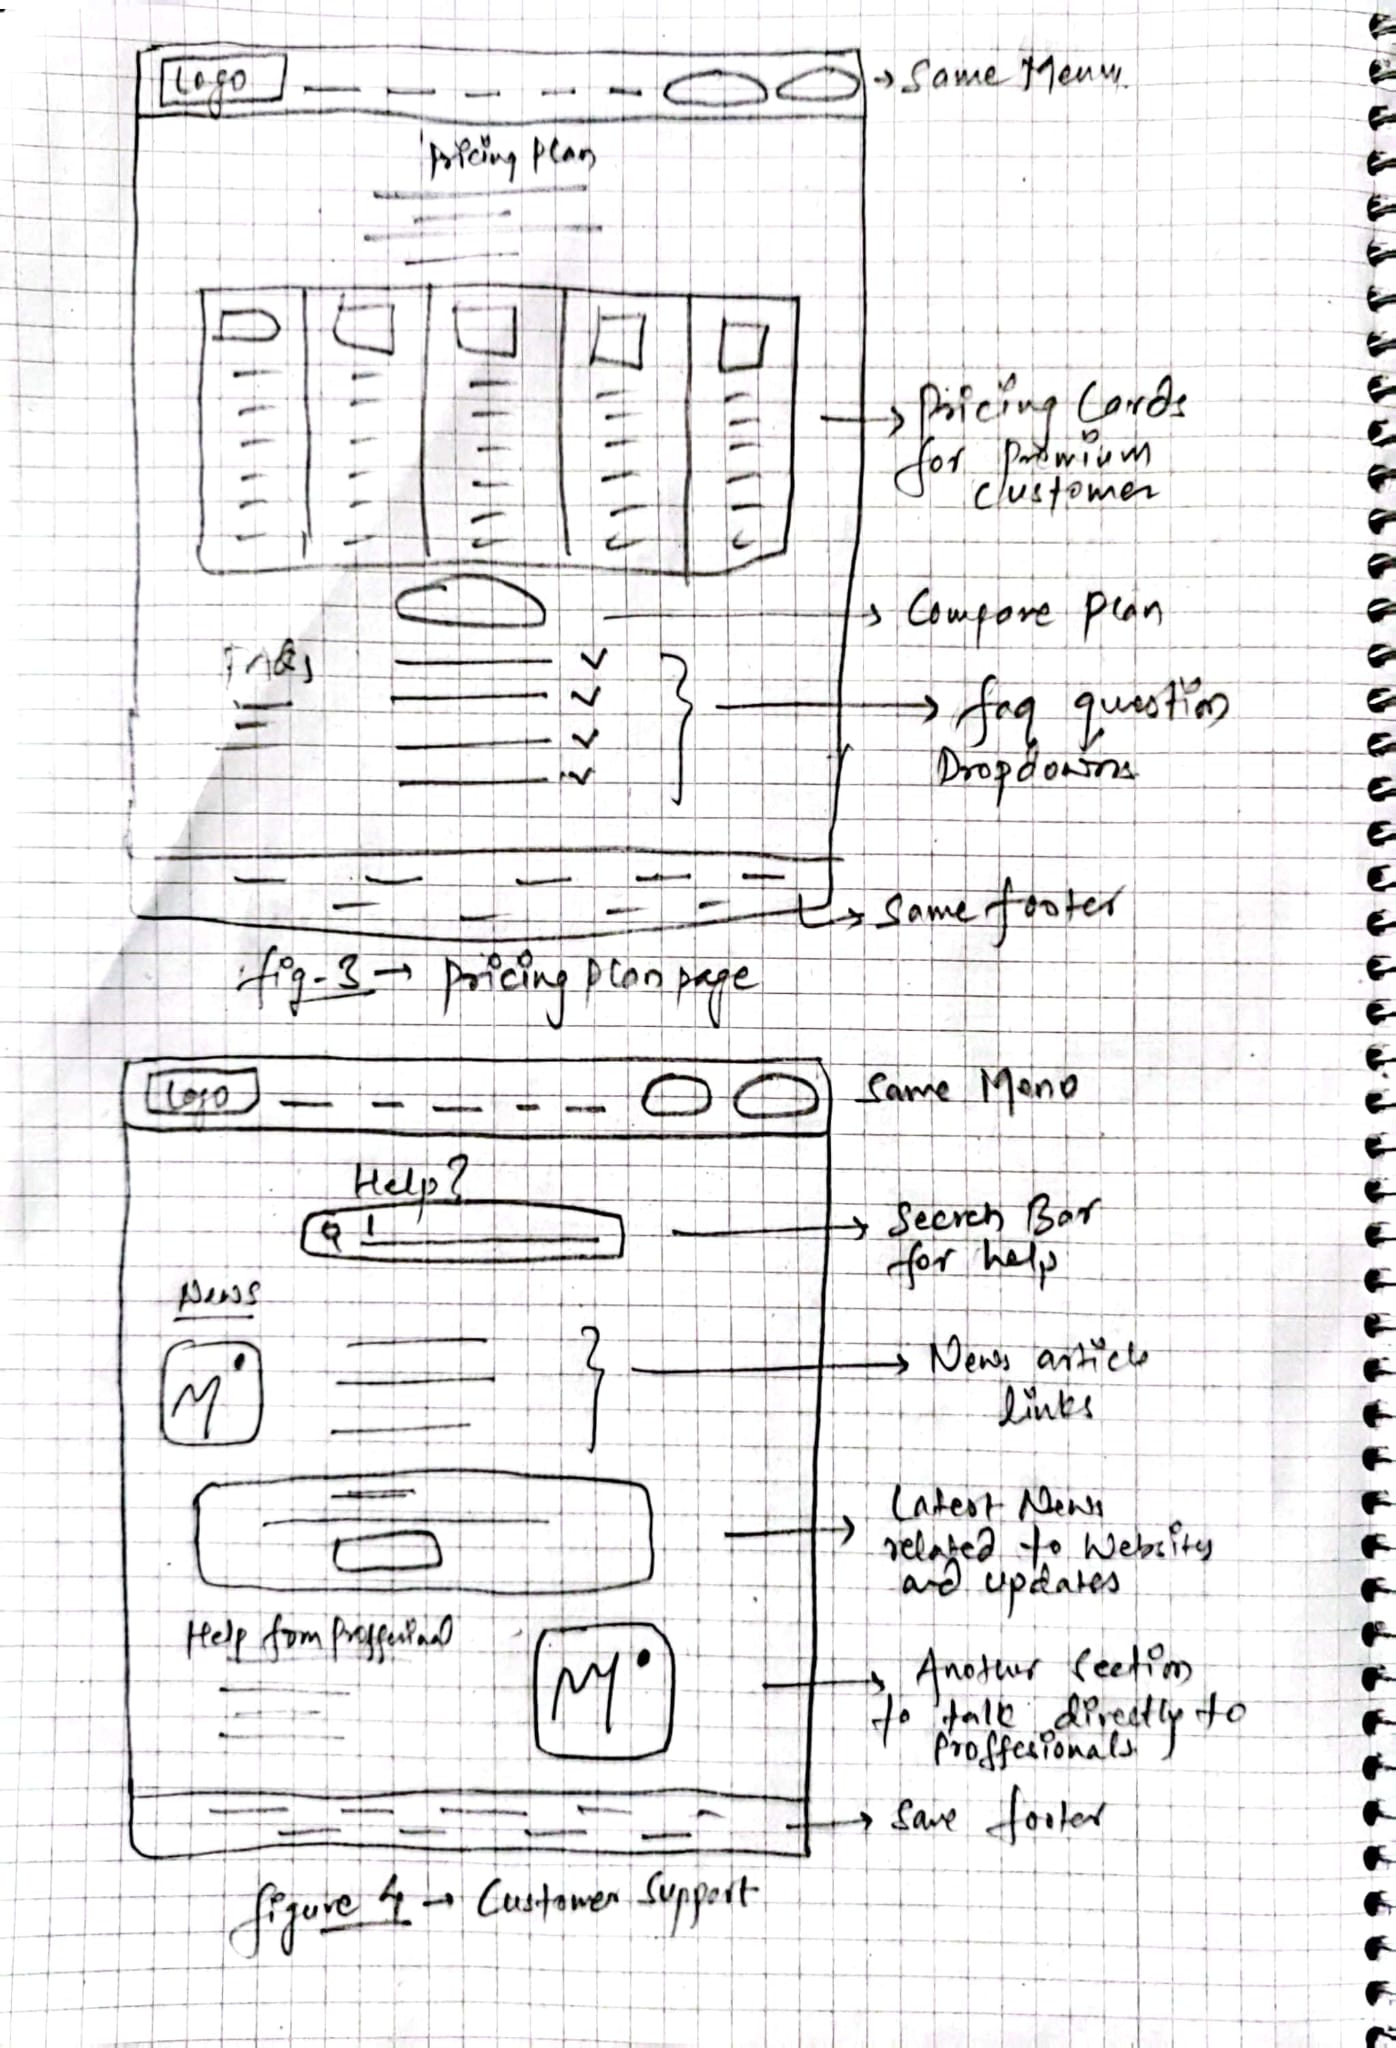 Logo
→ Same Menu
Pricing Plan
→ Pricing Cards
for Premium
Customer
→ Compare Plan
FAQs
→ faq question
Dropdowns
→ Same footer
fig-3 → Pricing Plan page
Logo
Same Menu
Help?
→ Search Bar
for help
News
→ News article
links
→ Latest News
related to Website
and updates
Help from
→ Another section
to talk directly to
Proffesionals
→ Same footer
figure 4 → Customer Support